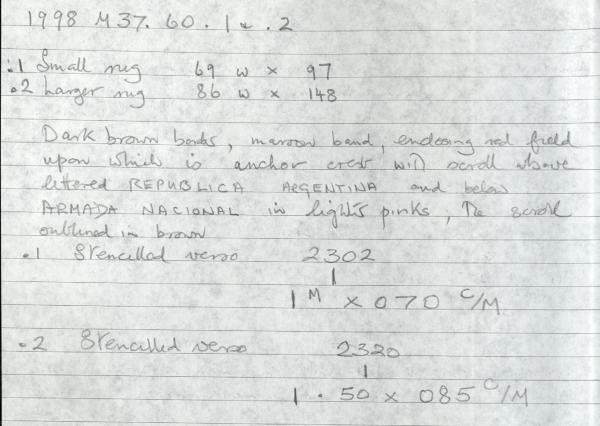 1998 M37. 60. 1 & .2
.1 Small rug 69 w x 97
.2 Larger rug 86 w x 148
Dark brown bords, maroon band, enclosing red field
upon which is anchor crest with scroll above
lettered REPUBLICA ARGENTINA and below
ARMADA NACIONAL in lights pinks, The scroll
outlined in brown
.1 Stencilled verso 2302
|
1 M x 070 C/M
.2 Stencilled verso 2320
|
1 . 50 x 085 C/M